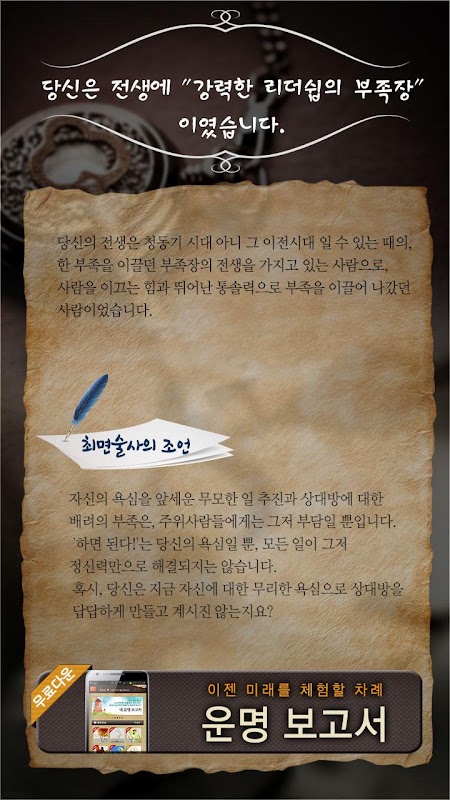 당신은 전생에 "강력한 리더쉽의 부족장"
이였습니다.
당신의 전생은 청동기 시대 아니 그 이전시대 일 수 있는 때의,
한 부족을 이끌던 부족장의 전생을 가지고 있는 사람으로,
사람을 이끄는 힘과 뛰어난 통솔력으로 부족을 이끌어 나갔던
사람이었습니다.
최면술사의 조언
자신의 욕심을 앞세운 무모한 일 추진과 상대방에 대한
배려의 부족은, 주위사람들에게는 그저 부담일 뿐입니다.
'하면 된다!'는 당신의 욕심일 뿐, 모든 일이 그저
정신력만으로 해결되지는 않습니다.
혹시, 당신은 지금 자신에 대한 무리한 욕심으로 상대방을
답답하게 만들고 계시진 않는지요?
무료다운
이젠 미래를 체험할 차례
운명 보고서